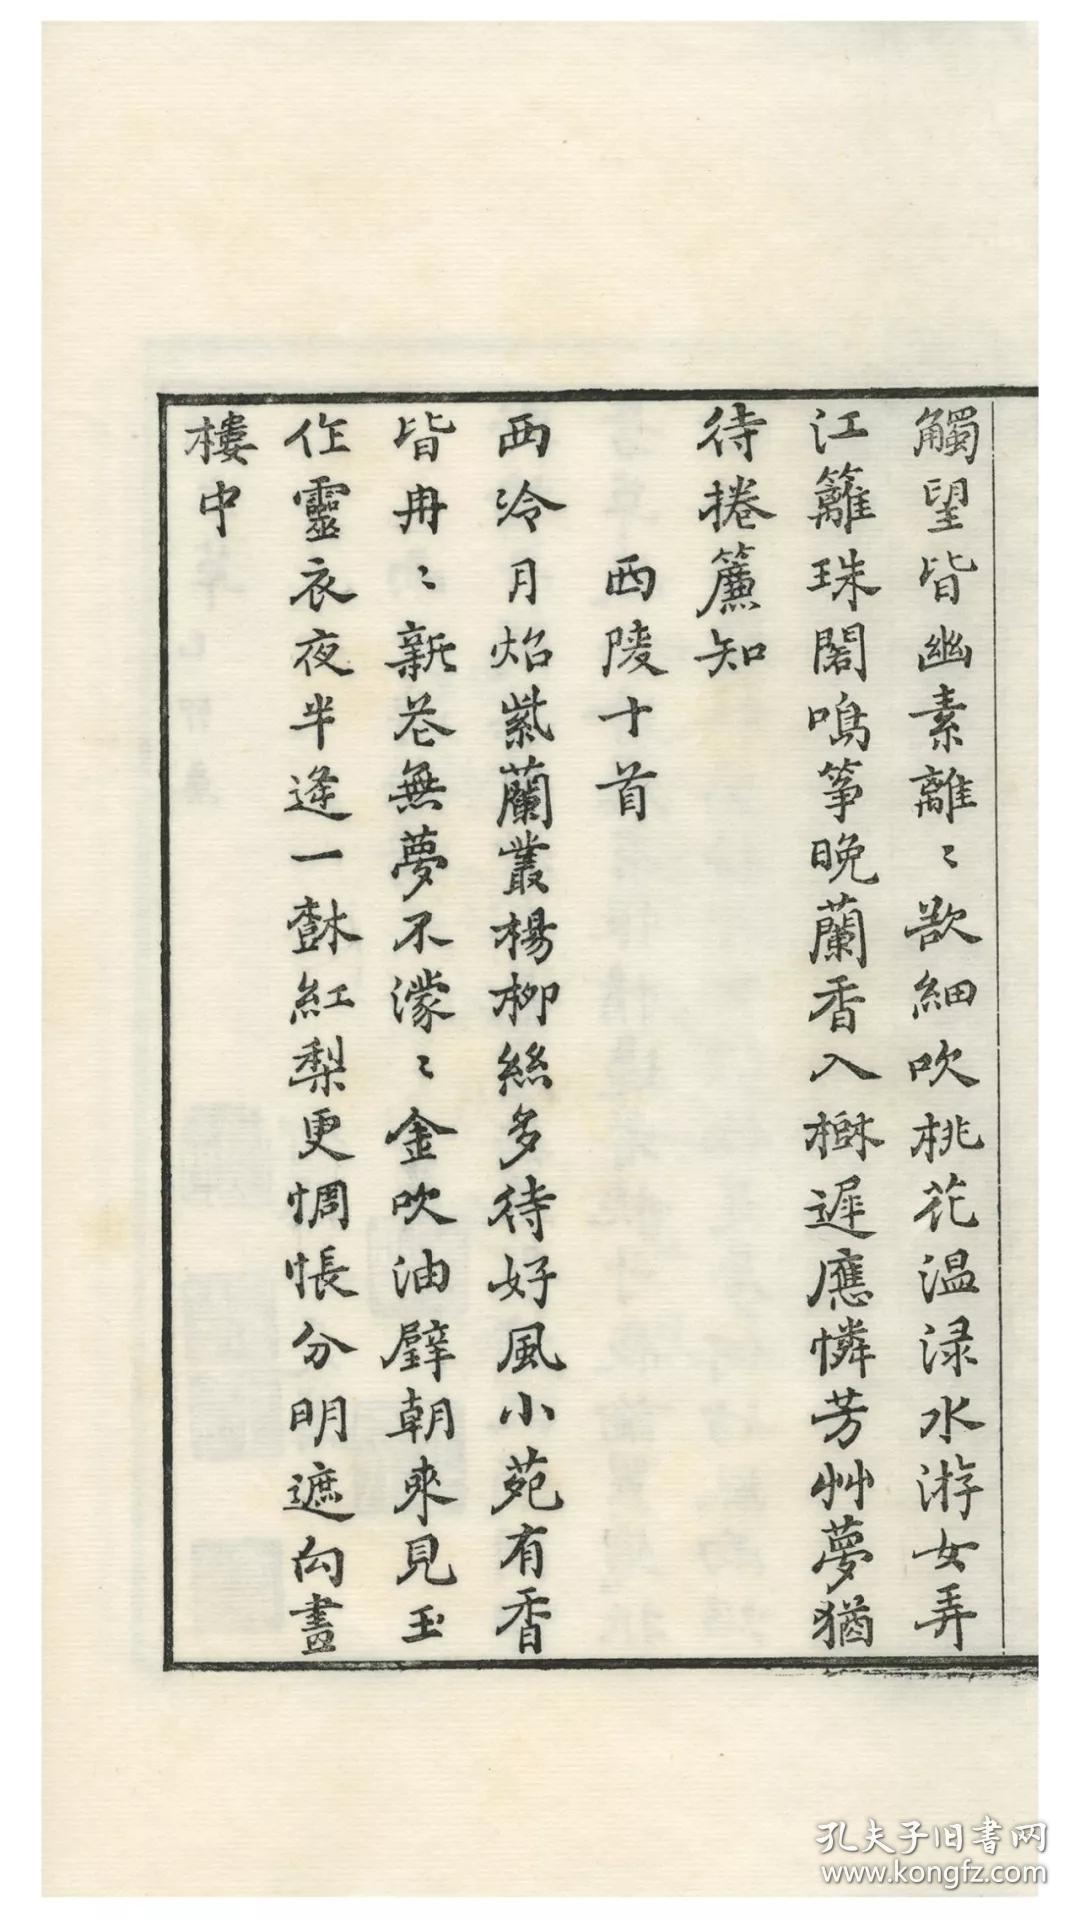 觸望皆幽素離〻欲細吹桃花温渌水游女弄
江籬珠閣鳴箏晚蘭香入遲應憐芳艸夢猶
待捲簾知
西陵十首
西泠月炤紫蘭叢楊柳絲多待好風小苑有香
皆冉〻新花無夢不濛〻金吹油壁朝來見玉
作靈衣夜半逢一樹紅梨更惆悵分明遮向畫
樓中
孔夫子旧書网
www.kongfz.com